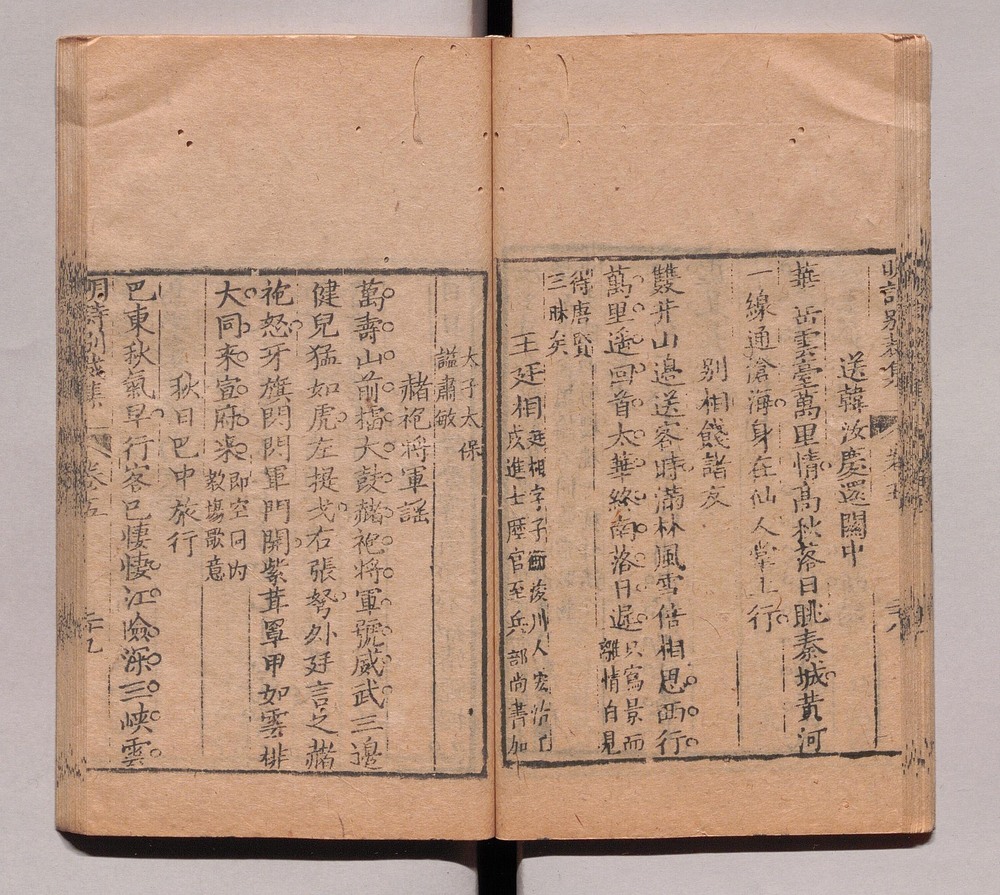 明詩別裁集 卷五 三八
送韓汝慶還關中
華岳雲臺萬里情高秋落日眺秦城黃河
一線通滄海身在仙人掌上行
別相餞諸友
雙井山邊送客時滿林風雪倍相思西行
萬里遙回首太華終南落日遲 只寫景而離情自見
得唐賢三昧矣
王廷相 廷相字子衡浚川人宏治
戌進士歷官至兵部尚書加
太子太保
諡肅敏
赭袍將軍謠
萬壽山前擂大鼓赭袍將軍號威武三邊
健兒猛如虎左提戈右張弩外廷言之赭
袍怒牙旗閃閃軍門開紫茸罩甲如雲排
大同來宣府來 即空同內教場歌意
秋日巴中旅行
巴東秋氣早行客已悽悽江險深三峽雲
明詩別裁集 卷五 三九